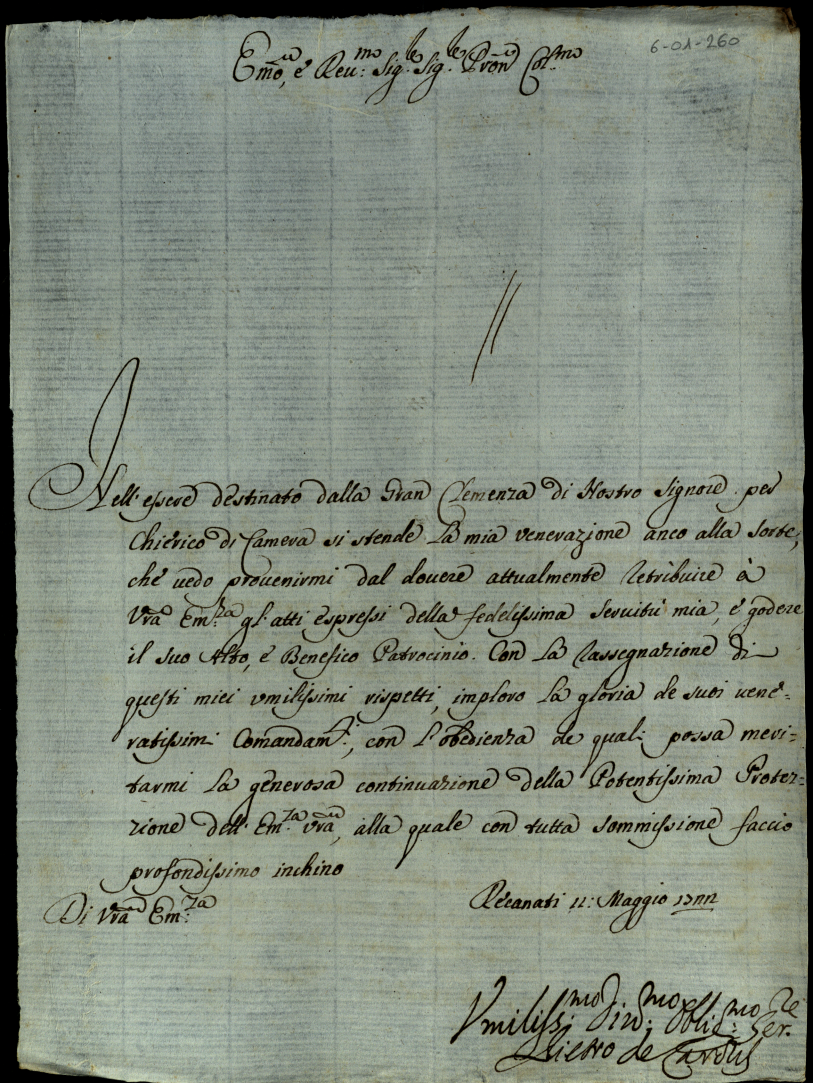 6-01-260
Emo, e Reu:mo Sig:le Sig:le Pron Col:mo
Nell'essere destinato dalla Gran Clemenza di Nostro Signore per
Chierico di Camera si stende la mia venerazione anco alla sorte,
che uedo prouenirmi dal douere attualmente retribuire à
Vra Em:za gl'atti espressi della fedelissima seruitù mia, e godere
il suo Alto, e Benefico Patrocinio. Con la rassegnazione di
questi miei vmilissimi rispetti, imploro la gloria de suoi uene=
ratissimi Comandam:ti, con l'obedienza de quali possa meri=
tarmi la generosa continuazione della Potentissima Protez=
zione dell'Em:za vra, alla quale con tutta sommissione faccio
profondissimo inchino
Di Vra Em:za
Recanati 11: Maggio
Vmiliss:mo Diu:mo Oblig:mo Ser:re
Pietro de